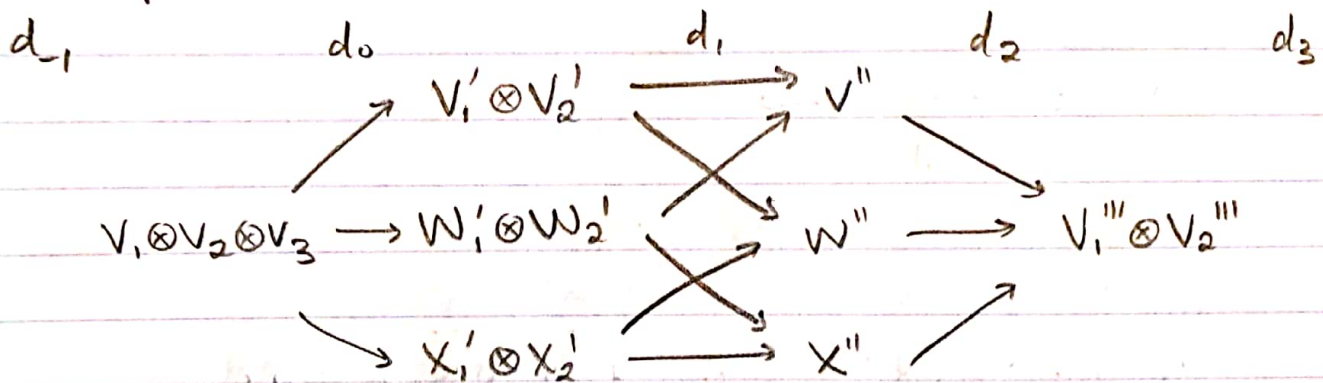 d₋₁ d₀ d₁ d₂ d₃
V₁' ⊗ V₂' V''
V₁ ⊗ V₂ ⊗ V₃ → W₁' ⊗ W₂' W'' → V₁''' ⊗ V₂'''
X₁' ⊗ X₂' → X''